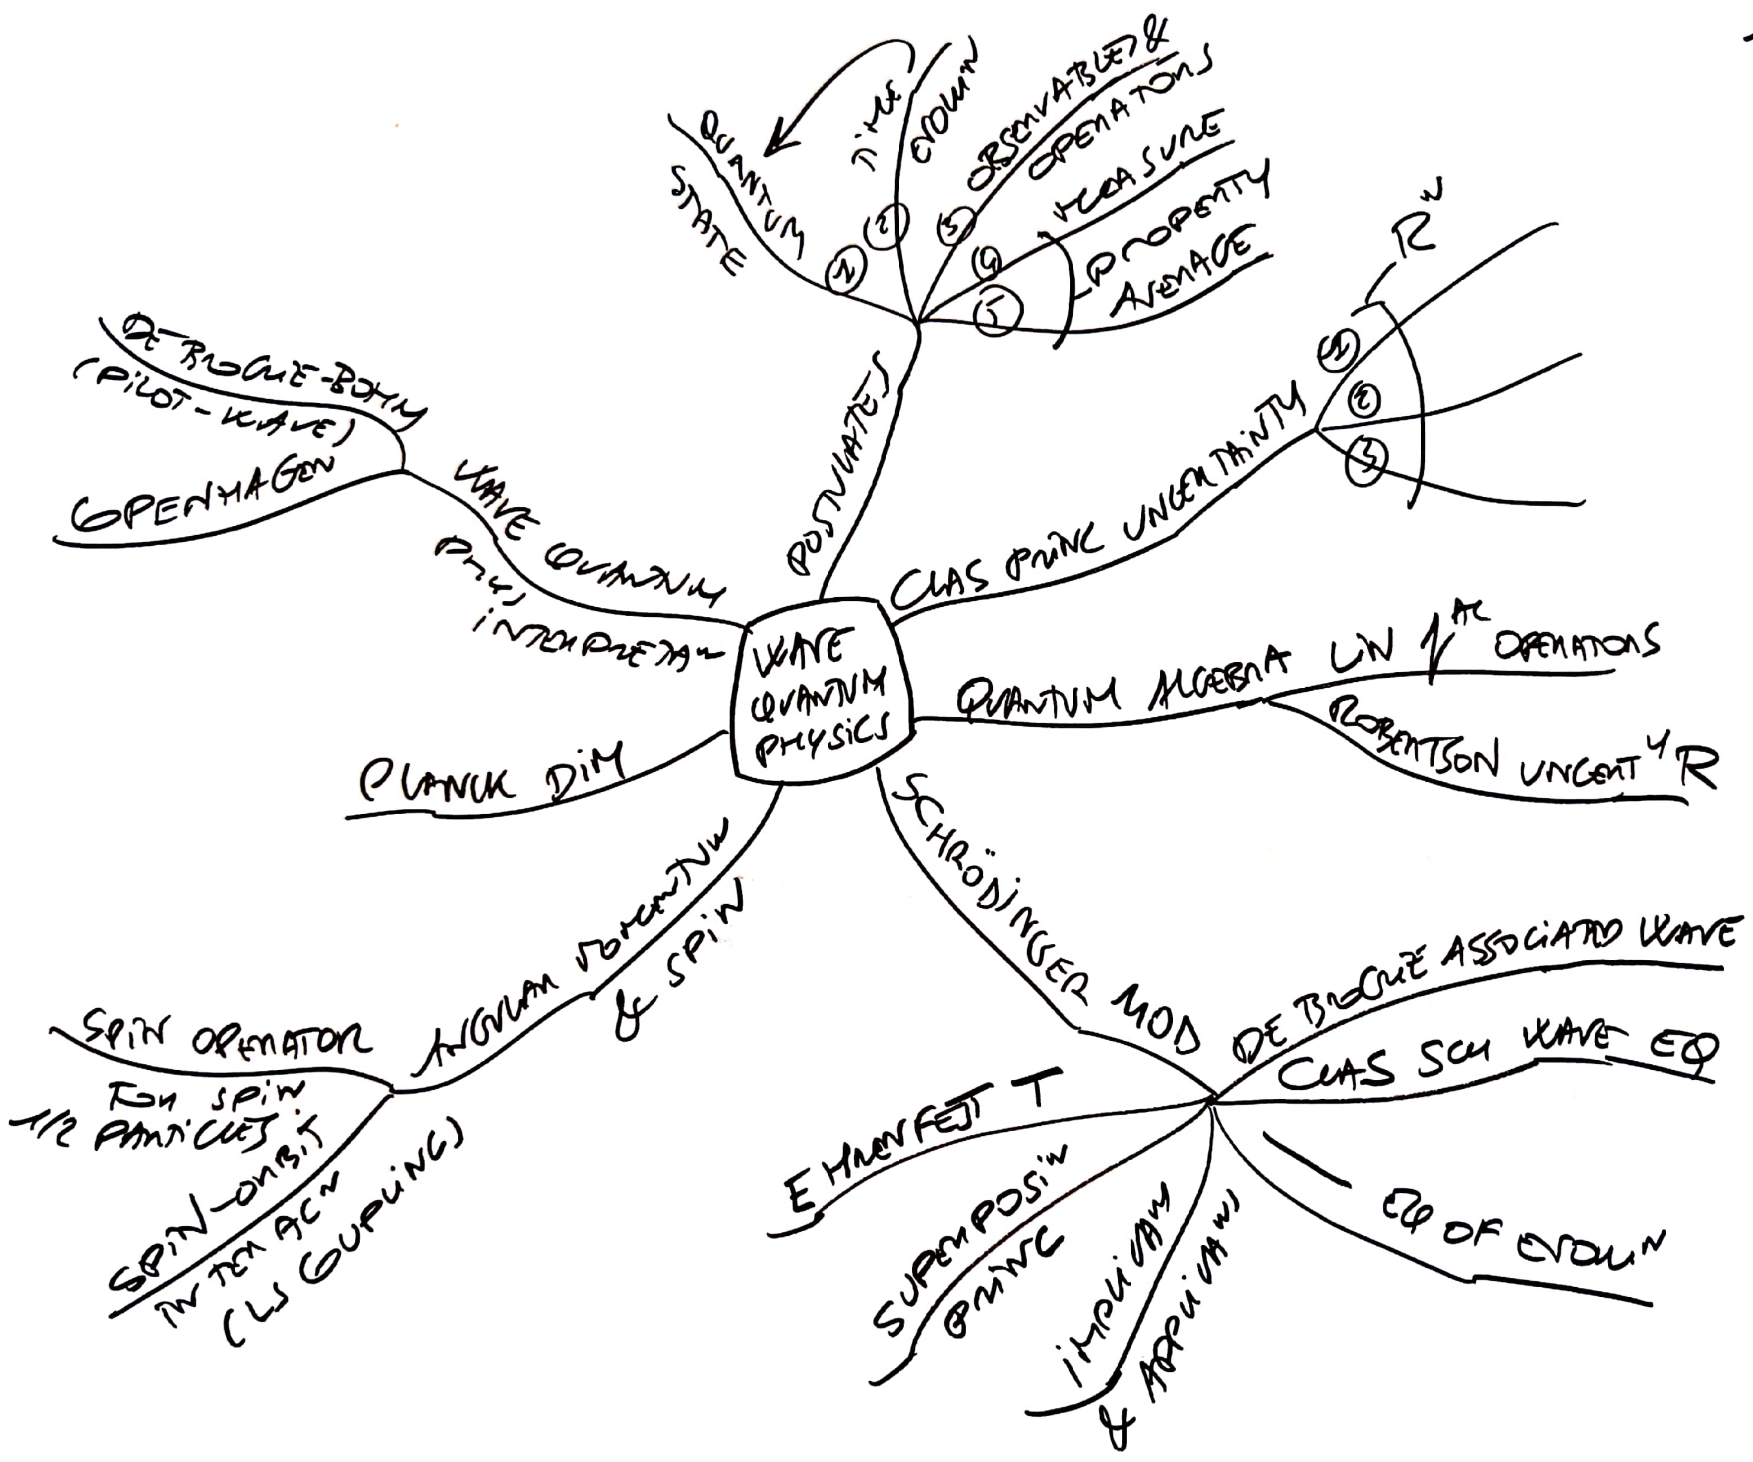 WAVE
QUANTUM
PHYSICS
POSTULATES
① QUANTUM
STATE
② TIME
EVOLUᴺ
③ OBSERVABLES &
OPERATORS
④ MEASURE
⑤ AVERAGE
PROPERTY
CLAS PRINC UNCERTAINTY
①
②
③
Rᴺ
QUANTUM ALGEBRA
LIN ᴬᴸ OPERATORS
ROBERTSON UNCERTᵞ R
SCHRÖDINGER MOD
DE BROGLIE ASSOCIATED WAVE
CLAS SCH WAVE EQ
EQ OF EVOLUᴺ
IMPLICAᴺS
& APPLICAᴺS
SUPERPOSIᴺ
PRINC
EHRENFEST T
ANGULAR MOMENTUM
& SPIN
SPIN OPERATOR
FOR SPIN
1/2 PARTICLES
SPIN-ORBIT
INTERACᴺ
(LS COUPLING)
PLANCK DIM
WAVE QUANTUM
PHYS
INTERPRETAᴺ
DE BROGLIE-BOHM
(PILOT-WAVE)
COPENHAGEN